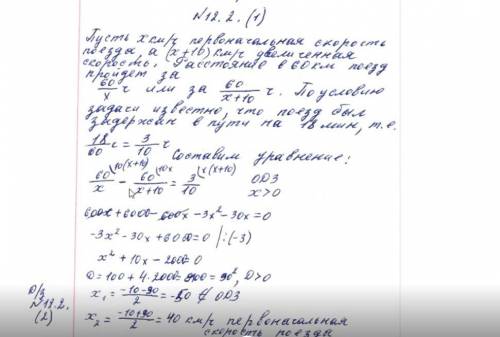 №12.2.(1)
Пусть x км/ч первоначальная скорость
поезда, а (x+10) км/ч увеличенная
скорость. Расстояние в 60 км поезд
пройдет за
60/x ч или за 60/(x+10) ч. По условию
задачи известно, что поезд был
задержан в пути на 18 мин, т.е.
18/60 ч = 3/10 ч
Составим уравнение:
60/x \10(x+10) - 60/(x+10) \10x = 3/10 \x(x+10) ОДЗ
x>0
600x+6000-600x-3x²-30x=0
-3x²-30x+6000=0 |:(-3)
x²+10x-2000=0
D=100+4·2000= =90², D>0
x₁= (-10-90)/2 =-50 ∉ ОДЗ
D/з
№12.2.
(2)
x₂= (-10+90)/2 = 40 км/ч первоначальная
скорость поезда